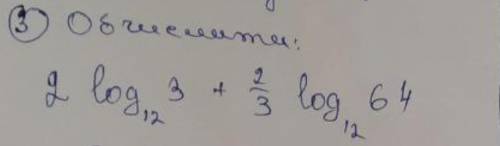 ③ Обчислити:
2 log₁₂ 3 + 2/3 log₁₂ 64